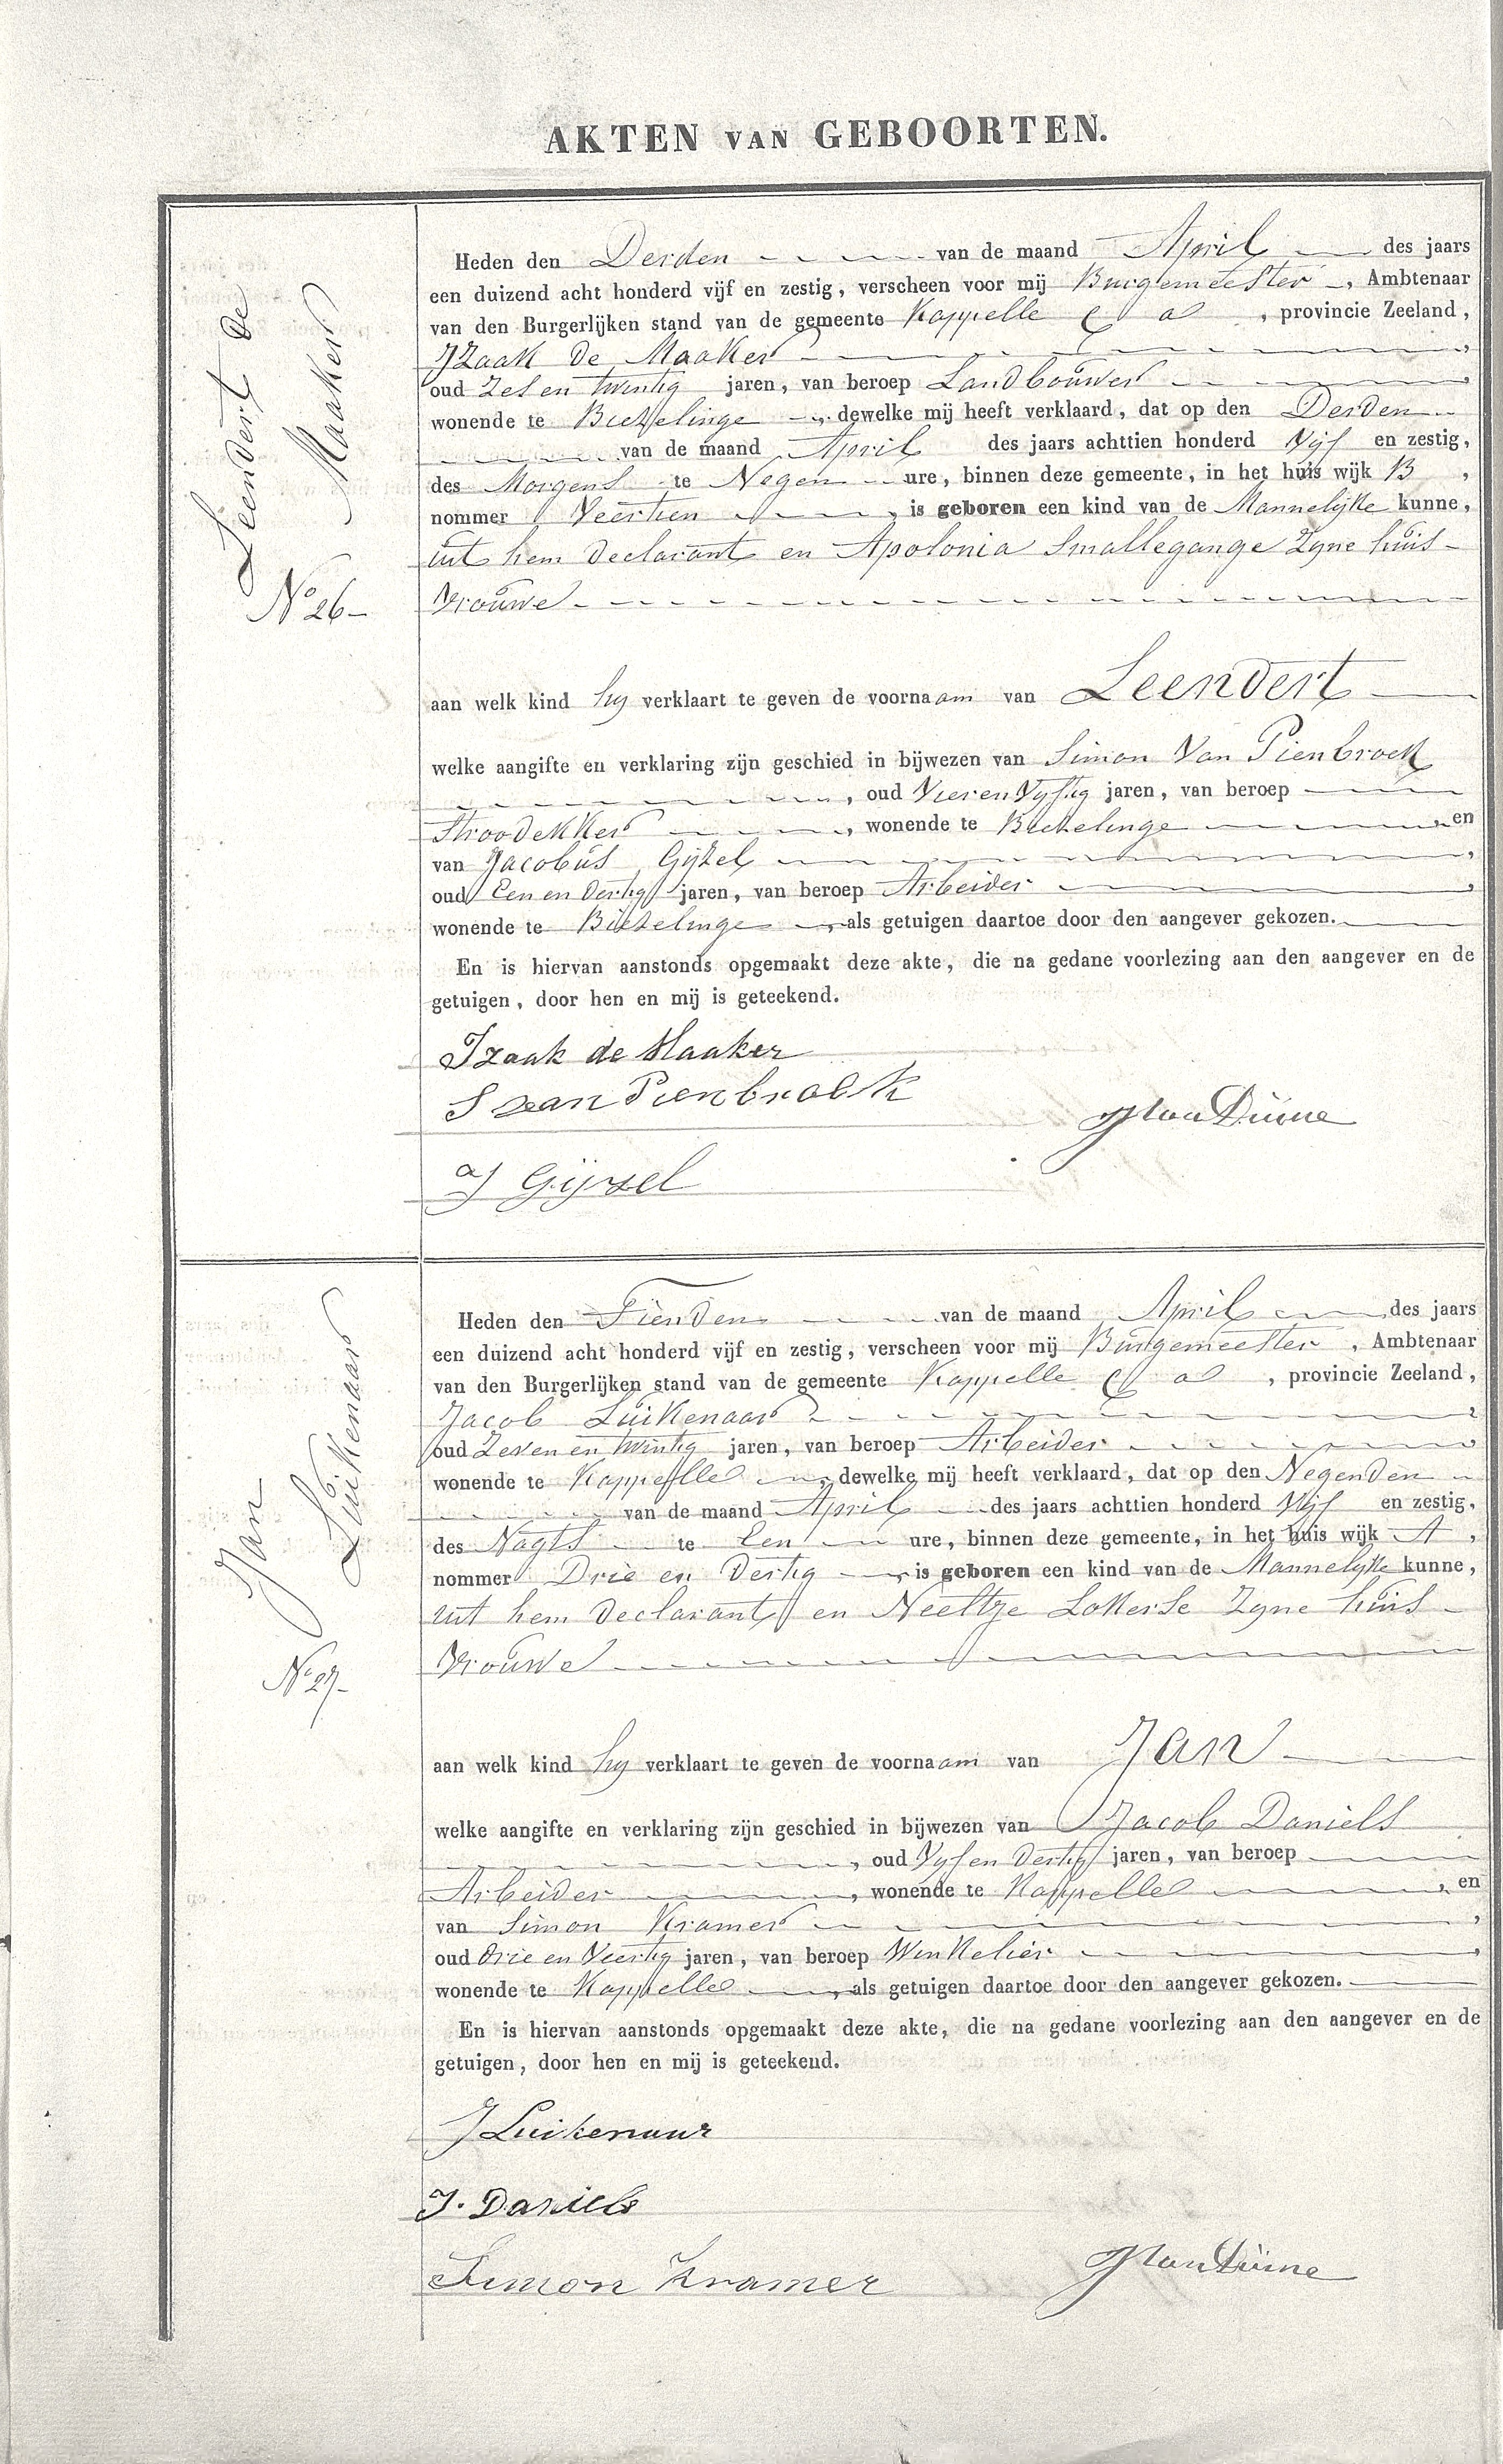 AKTEN VAN GEBOORTEN.
Leendert de
Maaker
No 26-
Heden den Derden van de maand April des jaars
een duizend acht honderd vijf en zestig, verscheen voor mij Burgemeester, Ambtenaar
van den Burgerlijken stand van de gemeente Kappelle C a, provincie Zeeland,
Izaak de Maaker,
oud Zes en twintig jaren, van beroep Landbouwer,
wonende te Biezelinge, dewelke mij heeft verklaard, dat op den Derden
van de maand April des jaars achttien honderd Vijf en zestig,
des Morgens te Negen ure, binnen deze gemeente, in het huis wijk B,
nommer Veertien, is geboren een kind van de Mannelyke kunne,
uit hem declarant en Apolonia Smallegange Zyne huis-
vrouwe
aan welk kind hy verklaart te geven de voornaam van Leendert
welke aangifte en verklaring zijn geschied in bijwezen van Simon Van Pienbroek
, oud Vier en Vyftig jaren, van beroep
Stroodekker, wonende te Biezelinge, en
van Jacobus Gijzel,
oud Een en dertig jaren, van beroep Arbeider,
wonende te Biezelinge, als getuigen daartoe door den aangever gekozen.
En is hiervan aanstonds opgemaakt deze akte, die na gedane voorlezing aan den aangever en de
getuigen, door hen en mij is geteekend.
Izaak de Maaker
S van Pienbroek
J Gijzel
Jan
Luikenaar
No 27-
Heden den Tienden van de maand April des jaars
een duizend acht honderd vijf en zestig, verscheen voor mij Burgemeester, Ambtenaar
van den Burgerlijken stand van de gemeente Kappelle C a, provincie Zeeland,
Jacob Luikenaar,
oud Zeven en twintig jaren, van beroep Arbeider,
wonende te Kappelle, dewelke mij heeft verklaard, dat op den Negenden
van de maand April des jaars achttien honderd Vijf en zestig,
des Nagts te Een ure, binnen deze gemeente, in het huis wijk A,
nommer Drie en dertig, is geboren een kind van de Mannelyke kunne,
uit hem declarant en Neeltje Lokerse Zyne huis-
vrouwe
aan welk kind hy verklaart te geven de voornaam van Jan
welke aangifte en verklaring zijn geschied in bijwezen van Jacob Daniels
, oud Vyf en dertig jaren, van beroep
Arbeider, wonende te Kappelle, en
van Simon Kramer,
oud drie en Veertig jaren, van beroep Winkelier,
wonende te Kappelle, als getuigen daartoe door den aangever gekozen.
En is hiervan aanstonds opgemaakt deze akte, die na gedane voorlezing aan den aangever en de
getuigen, door hen en mij is geteekend.
J Luikenaar
J. Daniels
Simon Kramer